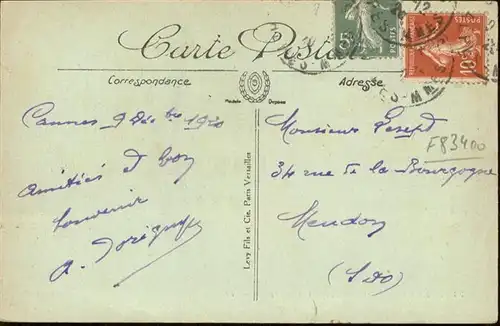 Carte Postale
Correspondance
Adresse
Modèle Déposé
Cannes 9 Décbre 1920
Amitiés et bon
Souvenir
Monsieur
F83400
34 rue de la Bourgogne
Meudon
(S &O)
Levy Fils et Cie, Paris Versailles
POSTES
10